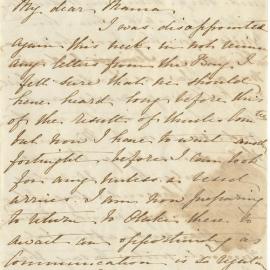 My dear Mama
I was disappointed
again this week in not
any letters from the I
felt sure that we should
have heard long before this
of the result of
but now I have to wait
fortnight before I can look
for any unless a vessel
arrives. I am now preparing
to return to there to
await an opportunity as
communication is